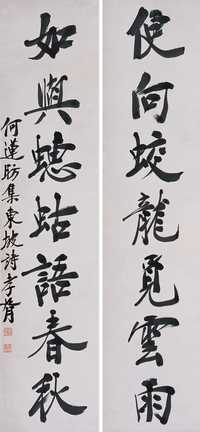 便向蛟龍覓雲雨
如與蟪蛄語春秋
何蓮昉集東坡詩孝胥